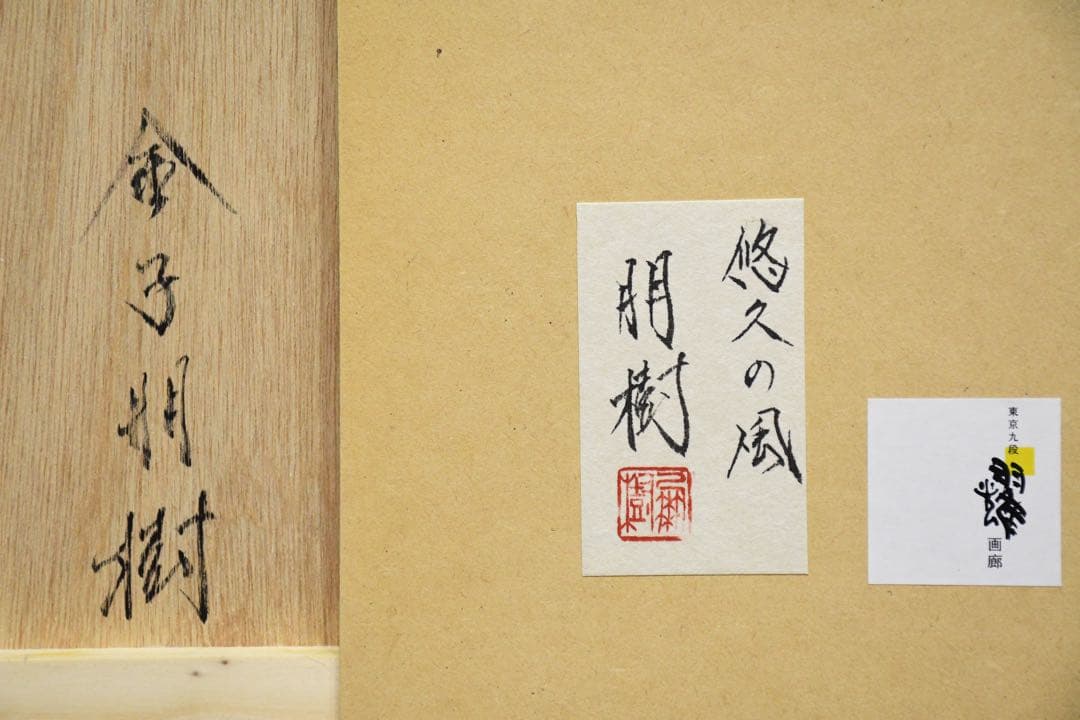 金子朋樹
悠久の風
朋樹
朋樹
東京九段
耀画廊